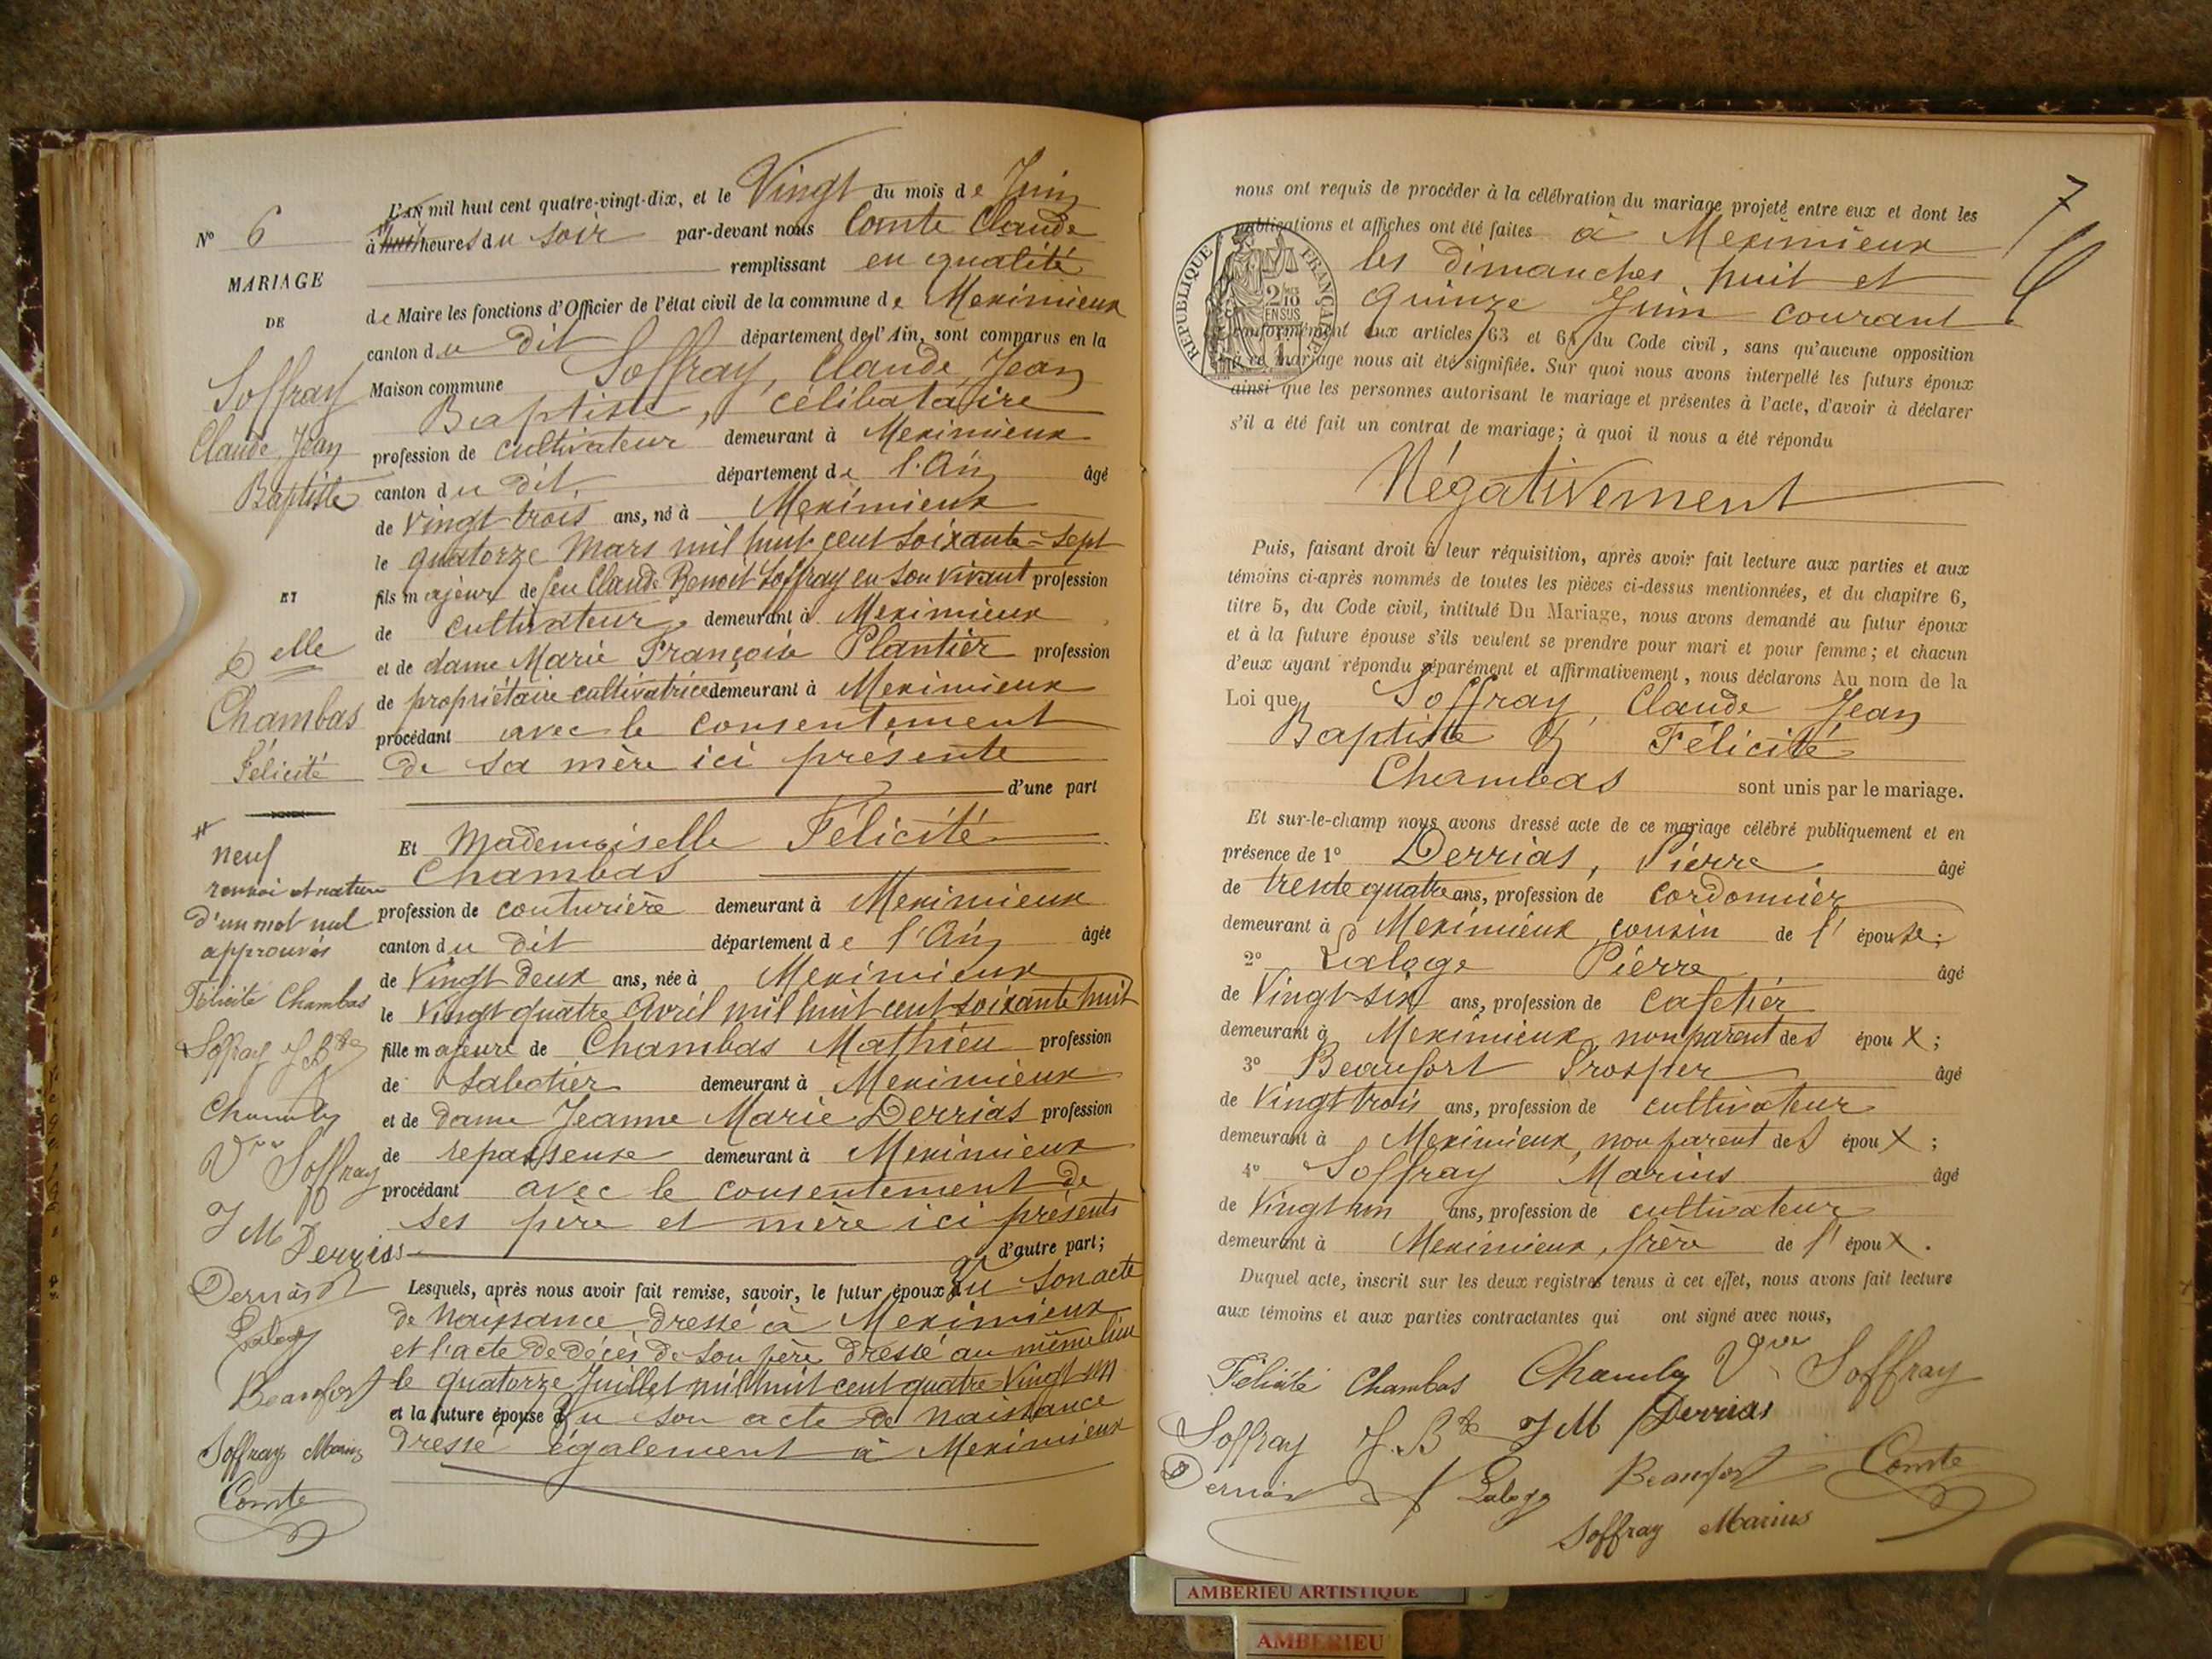 N° 6
MARIAGE
DE
Soffray
Claude, Jean
Baptiste
ET
Delle
Chambas
Félicité
neuf
renvoi et rature
d'un mot nul
approuvés
Félicité Chambas
Soffray J Bte
Vve Soffray
J M Derrias
Derrias
Laloge
Beaufort
Soffray Marius
Comte
L'AN mil huit cent quatre-vingt-dix, et le Vingt du mois de Juin
à huit heures du soir par-devant nous Comte Claude
remplissant en qualité
de Maire les fonctions d'Officier de l'état civil de la commune de Meximieux
canton du dit département de l'Ain, sont comparus en la
Maison commune Soffray, Claude, Jean
Baptiste, célibataire
profession de cultivateur demeurant à Meximieux
canton du dit, département de l'Ain âgé
de vingt trois ans, né à Meximieux
le quatorze Mars mil huit cent soixante-sept
fils majeur de feu Claude Benoit Soffray en son vivant profession
de cultivateur, demeurant à Meximieux
et de dame Marie Françoise Plantier profession
de propriétaire cultivatrice demeurant à Meximieux
procédant avec le consentement
de sa mère ici présente
d'une part
Et Mademoiselle Félicité
Chambas
profession de couturière demeurant à Meximieux
canton du dit département de l'Ain âgée
de Vingt deux ans, née à Meximieux
le Vingt quatre Avril mil huit cent soixante huit
fille majeure de Chambas Mathieu profession
de Sabotier demeurant à Meximieux
et de dame Jeanne Marie Derrias profession
de repasseuse demeurant à Meximieux
procédant avec le consentement de
ses père et mère ici présents
d'autre part;
Lesquels, après nous avoir fait remise, savoir, le futur époux du son acte
de naissance dressé à Meximieux
et l'acte de décès de son père dressé au même lieu
le quatorze Juillet mil huit cent quatre Vingt un
et la future épouse du son acte de naissance
dressé également à Meximieux
7
nous ont requis de procéder à la célébration du mariage projeté entre eux et dont les
publications et affiches ont été faites à Meximieux
les dimanches huit et
quinze Juin courant
conformément aux articles 63 et 64 du Code civil, sans qu'aucune opposition
à ce mariage nous ait été signifiée. Sur quoi nous avons interpellé les futurs époux
ainsi que les personnes autorisant le mariage et présentes à l'acte, d'avoir à déclarer
s'il a été fait un contrat de mariage; à quoi il nous a été répondu
RÉPUBLIQUE FRANÇAISE
Négativement
Puis, faisant droit à leur réquisition, après avoir fait lecture aux parties et aux
témoins ci-après nommés de toutes les pièces ci-dessus mentionnées, et du chapitre 6,
titre 5, du Code civil, intitulé Du Mariage, nous avons demandé au futur époux
et à la future épouse s'ils veulent se prendre pour mari et pour femme; et chacun
d'eux ayant répondu séparément et affirmativement, nous déclarons Au nom de la
Loi que Soffray, Claude Jean
Baptiste & Félicité
Chambas sont unis par le mariage.
Et sur-le-champ nous avons dressé acte de ce mariage célébré publiquement et en
présence de 1° Derrias, Pierre âgé
de trente quatre ans, profession de cordonnier
demeurant à Meximieux cousin de l'épouse;
2° Laloge Pierre âgé
de Vingt-six ans, profession de cafetier
demeurant à Meximieux, non parent des époux;
3° Beaufort Prosper âgé
de Vingt trois ans, profession de cultivateur
demeurant à Meximieux, non parent des époux;
4° Soffray Marius âgé
de Vingt un ans, profession de cultivateur
demeurant à Meximieux, frère de l'époux.
Duquel acte, inscrit sur les deux registres tenus à cet effet, nous avons fait lecture
aux témoins et aux parties contractantes qui ont signé avec nous,
Félicité Chambas Vve Soffray
Soffray J. Bte J M Derrias
Derrias Laloge Beaufort Comte
Soffray Marius
AMBERIEU ARTISTIQUE
AMBERIEU